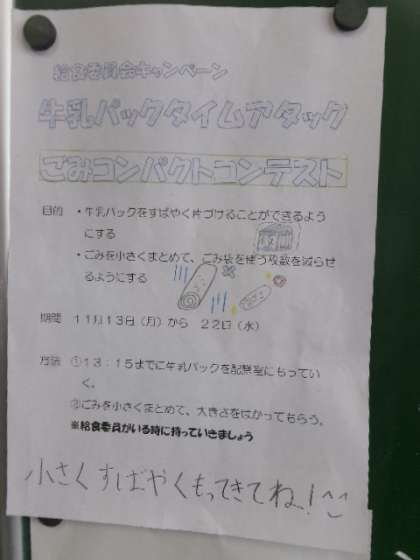 給食委員会キャンペーン
牛乳パックタイムアタック
ごみコンパクトコンテスト
目的 ・牛乳パックをすばやく片づけることができるよう
にする
・ごみを小さくまとめて、ごみ袋を使う枚数を減らせ
るようにする
期間 11月13日（月）から 22日（水）
方法 ①13：15までに牛乳パックを配膳室にもってい
く。
②ごみを小さくまとめて、大きさをはかってもらう。
※給食委員がいる時に持っていきましょう
小さくすばやくもってきてね！^^